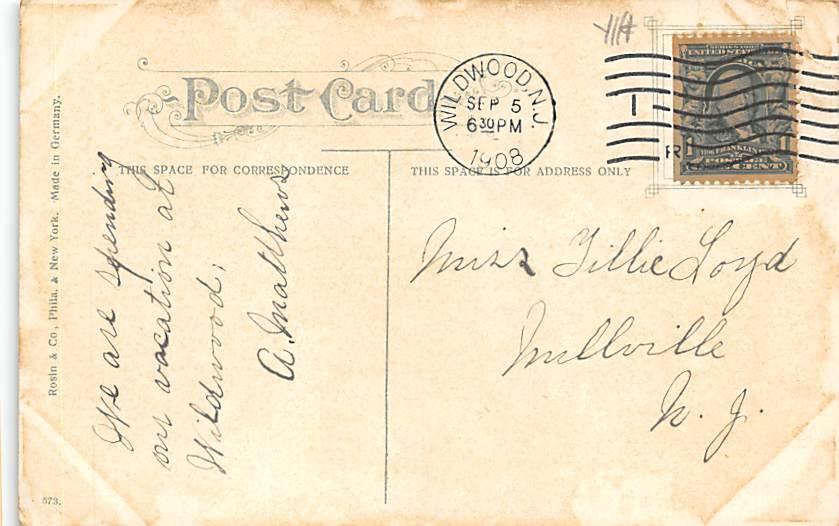 Y11A
Post Card
WILDWOOD, N.J.
SEP 5
630 PM
1908
1
R
SERIES 1902
UNITED STATES
FRANKLIN
1 1
THIS SPACE FOR CORRESPONDENCE
THIS SPACE IS FOR ADDRESS ONLY
We are spending
our vacation at
Wildwood;
A. Matthews
Miss Tillie Loyd
Millville
N. J.
Rosin & Co., Phila. & New York. Made in Germany.
573.